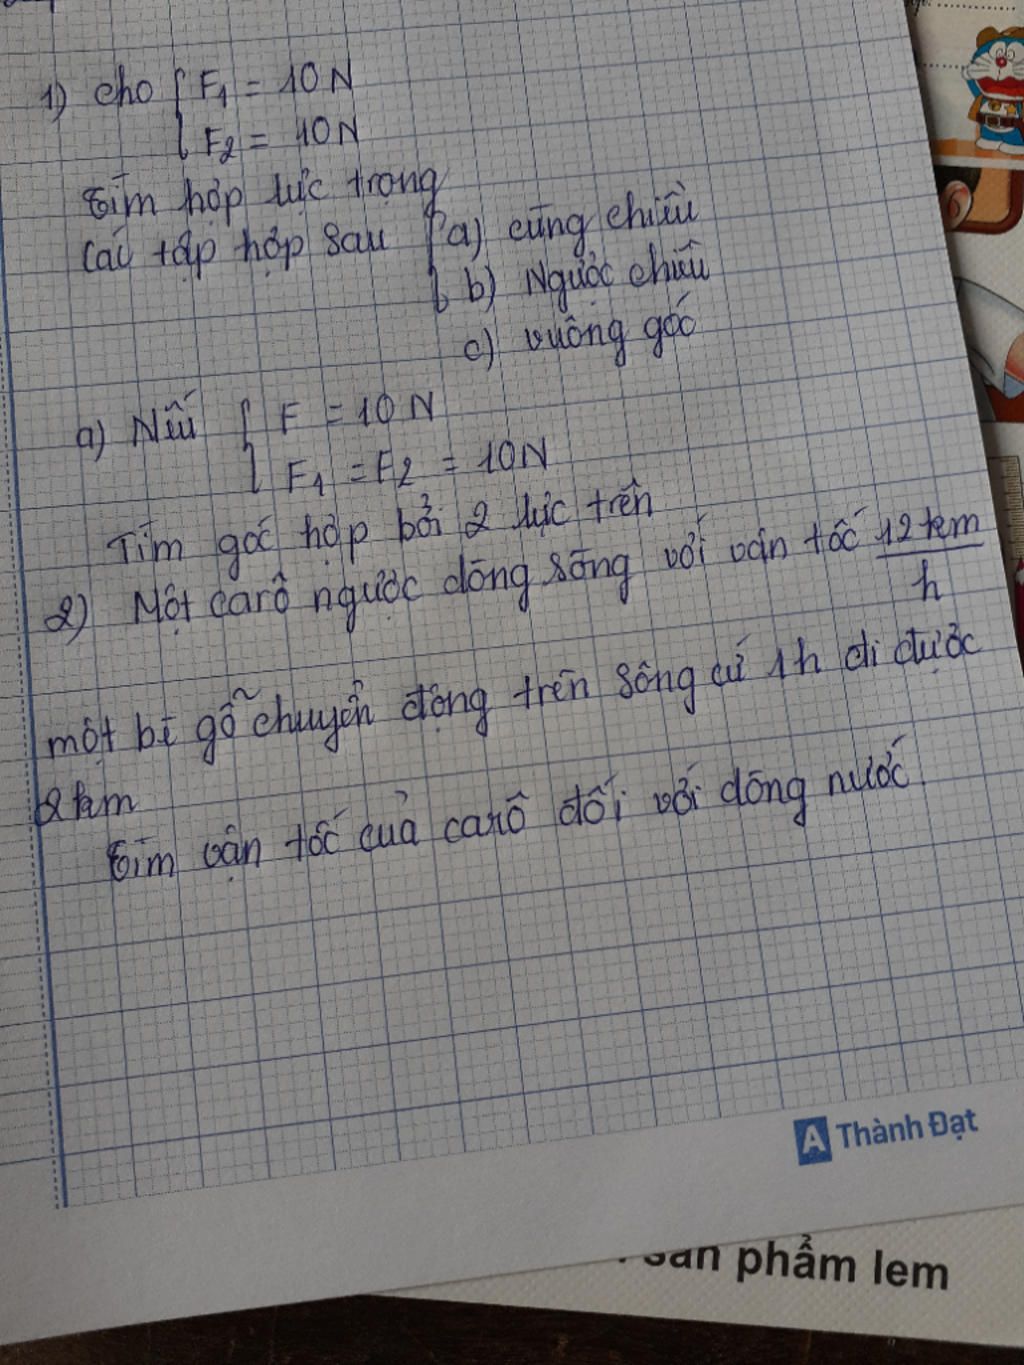 1) cho { F1 = 10 N
F2 = 10 N
tìm hợp lực trong
các tập hợp sau { a) cùng chiều
b) Ngược chiều
c) vuông góc
a) Nếu { F = 10 N
F1 = F2 = 10N
Tìm góc hợp bởi 2 lực trên
2) Một carô ngược dòng sông với vận tốc 12 km/h
một bè gỗ chuyển động trên sông cứ 1h đi được
2 km
tìm vận tốc của carô đối với dòng nước.
A Thành Đạt
sản phẩm lem